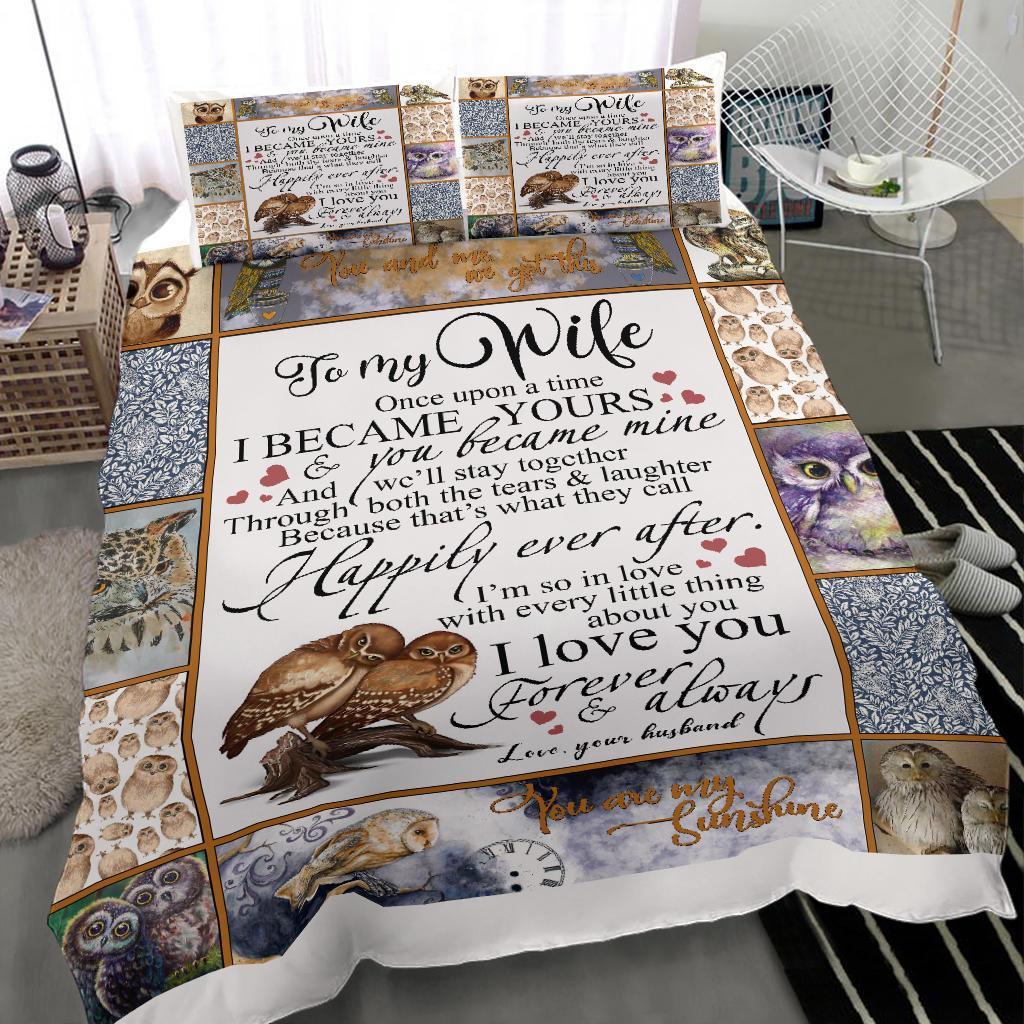 To my Wife
Once upon a time
I BECAME YOURS
& you became mine
And we'll stay together
Through both the tears & laughter
Because that's what they call
Happily ever after.
I'm so in love
with every little thing
about you
I love you
Forever
& always
Sunshine
To my Wife
Once upon a time
I BECAME YOURS
& you became mine
And we'll stay together
Through both the tears & laughter
Because that's what they call
Happily ever after.
I'm so in love
with every little thing
about you
I love you
Forever
& always
Sunshine
You and me
we got this
To my Wife
Once upon a time
I BECAME YOURS
& you became mine
And we'll stay together
Through both the tears & laughter
Because that's what they call
Happily ever after.
I'm so in love
with every little thing
about you
I love you
Forever
& always
Love, your husband
You are my
Sunshine